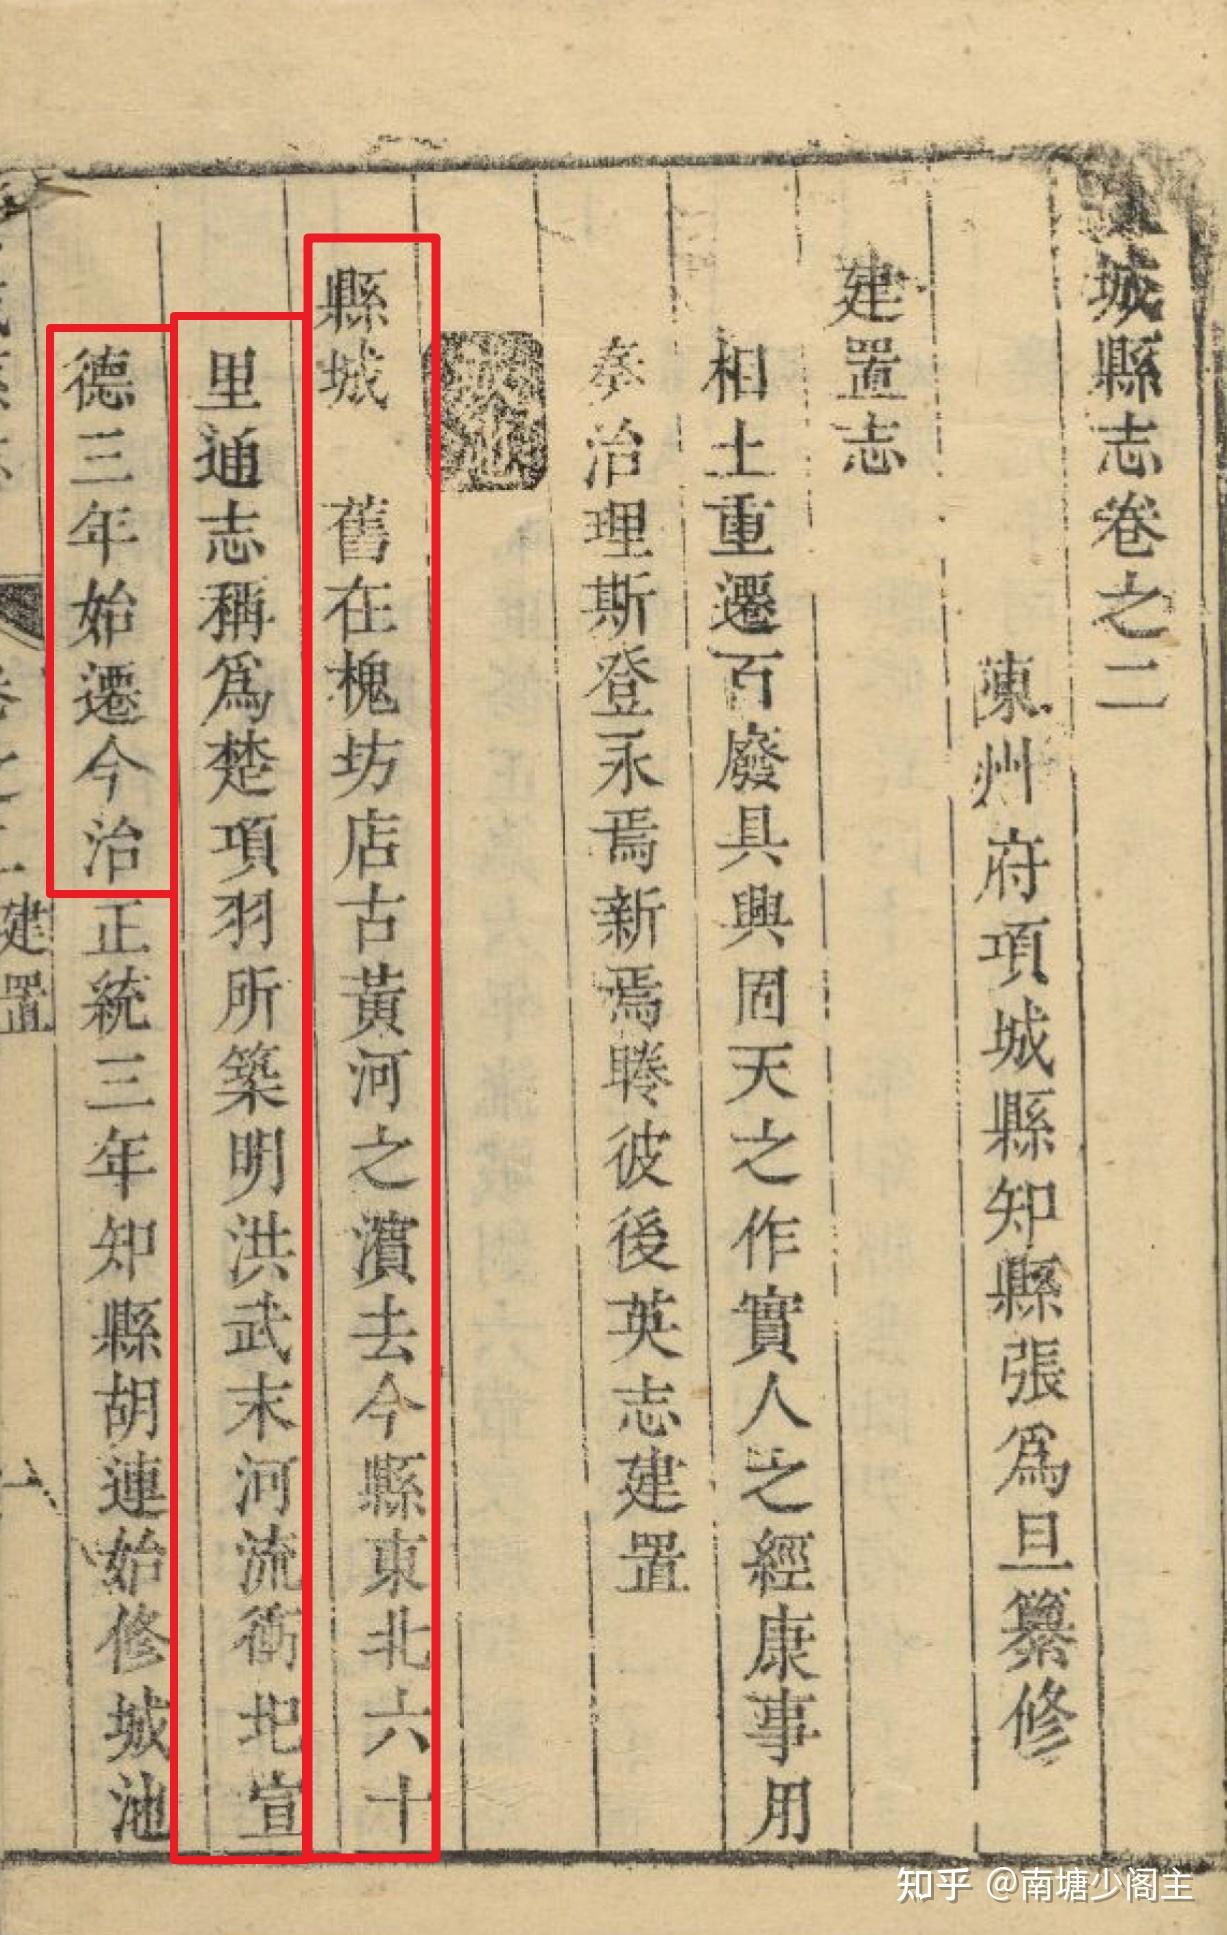 城縣志卷之二
陳州府項城縣知縣張爲旦纂修
建置志
相土重遷百廢具興固天之作實人之經康事用
奏治理斯登永焉新焉睠彼後英志建置
城池
縣城 舊在槐坊店古黃河之濱去今縣東北六十
里通志稱爲楚項羽所築明洪武末河流衝圯宣
德三年始遷今治正統三年知縣胡連始修城池
卷之二 建置
知乎 @南塘少阁主